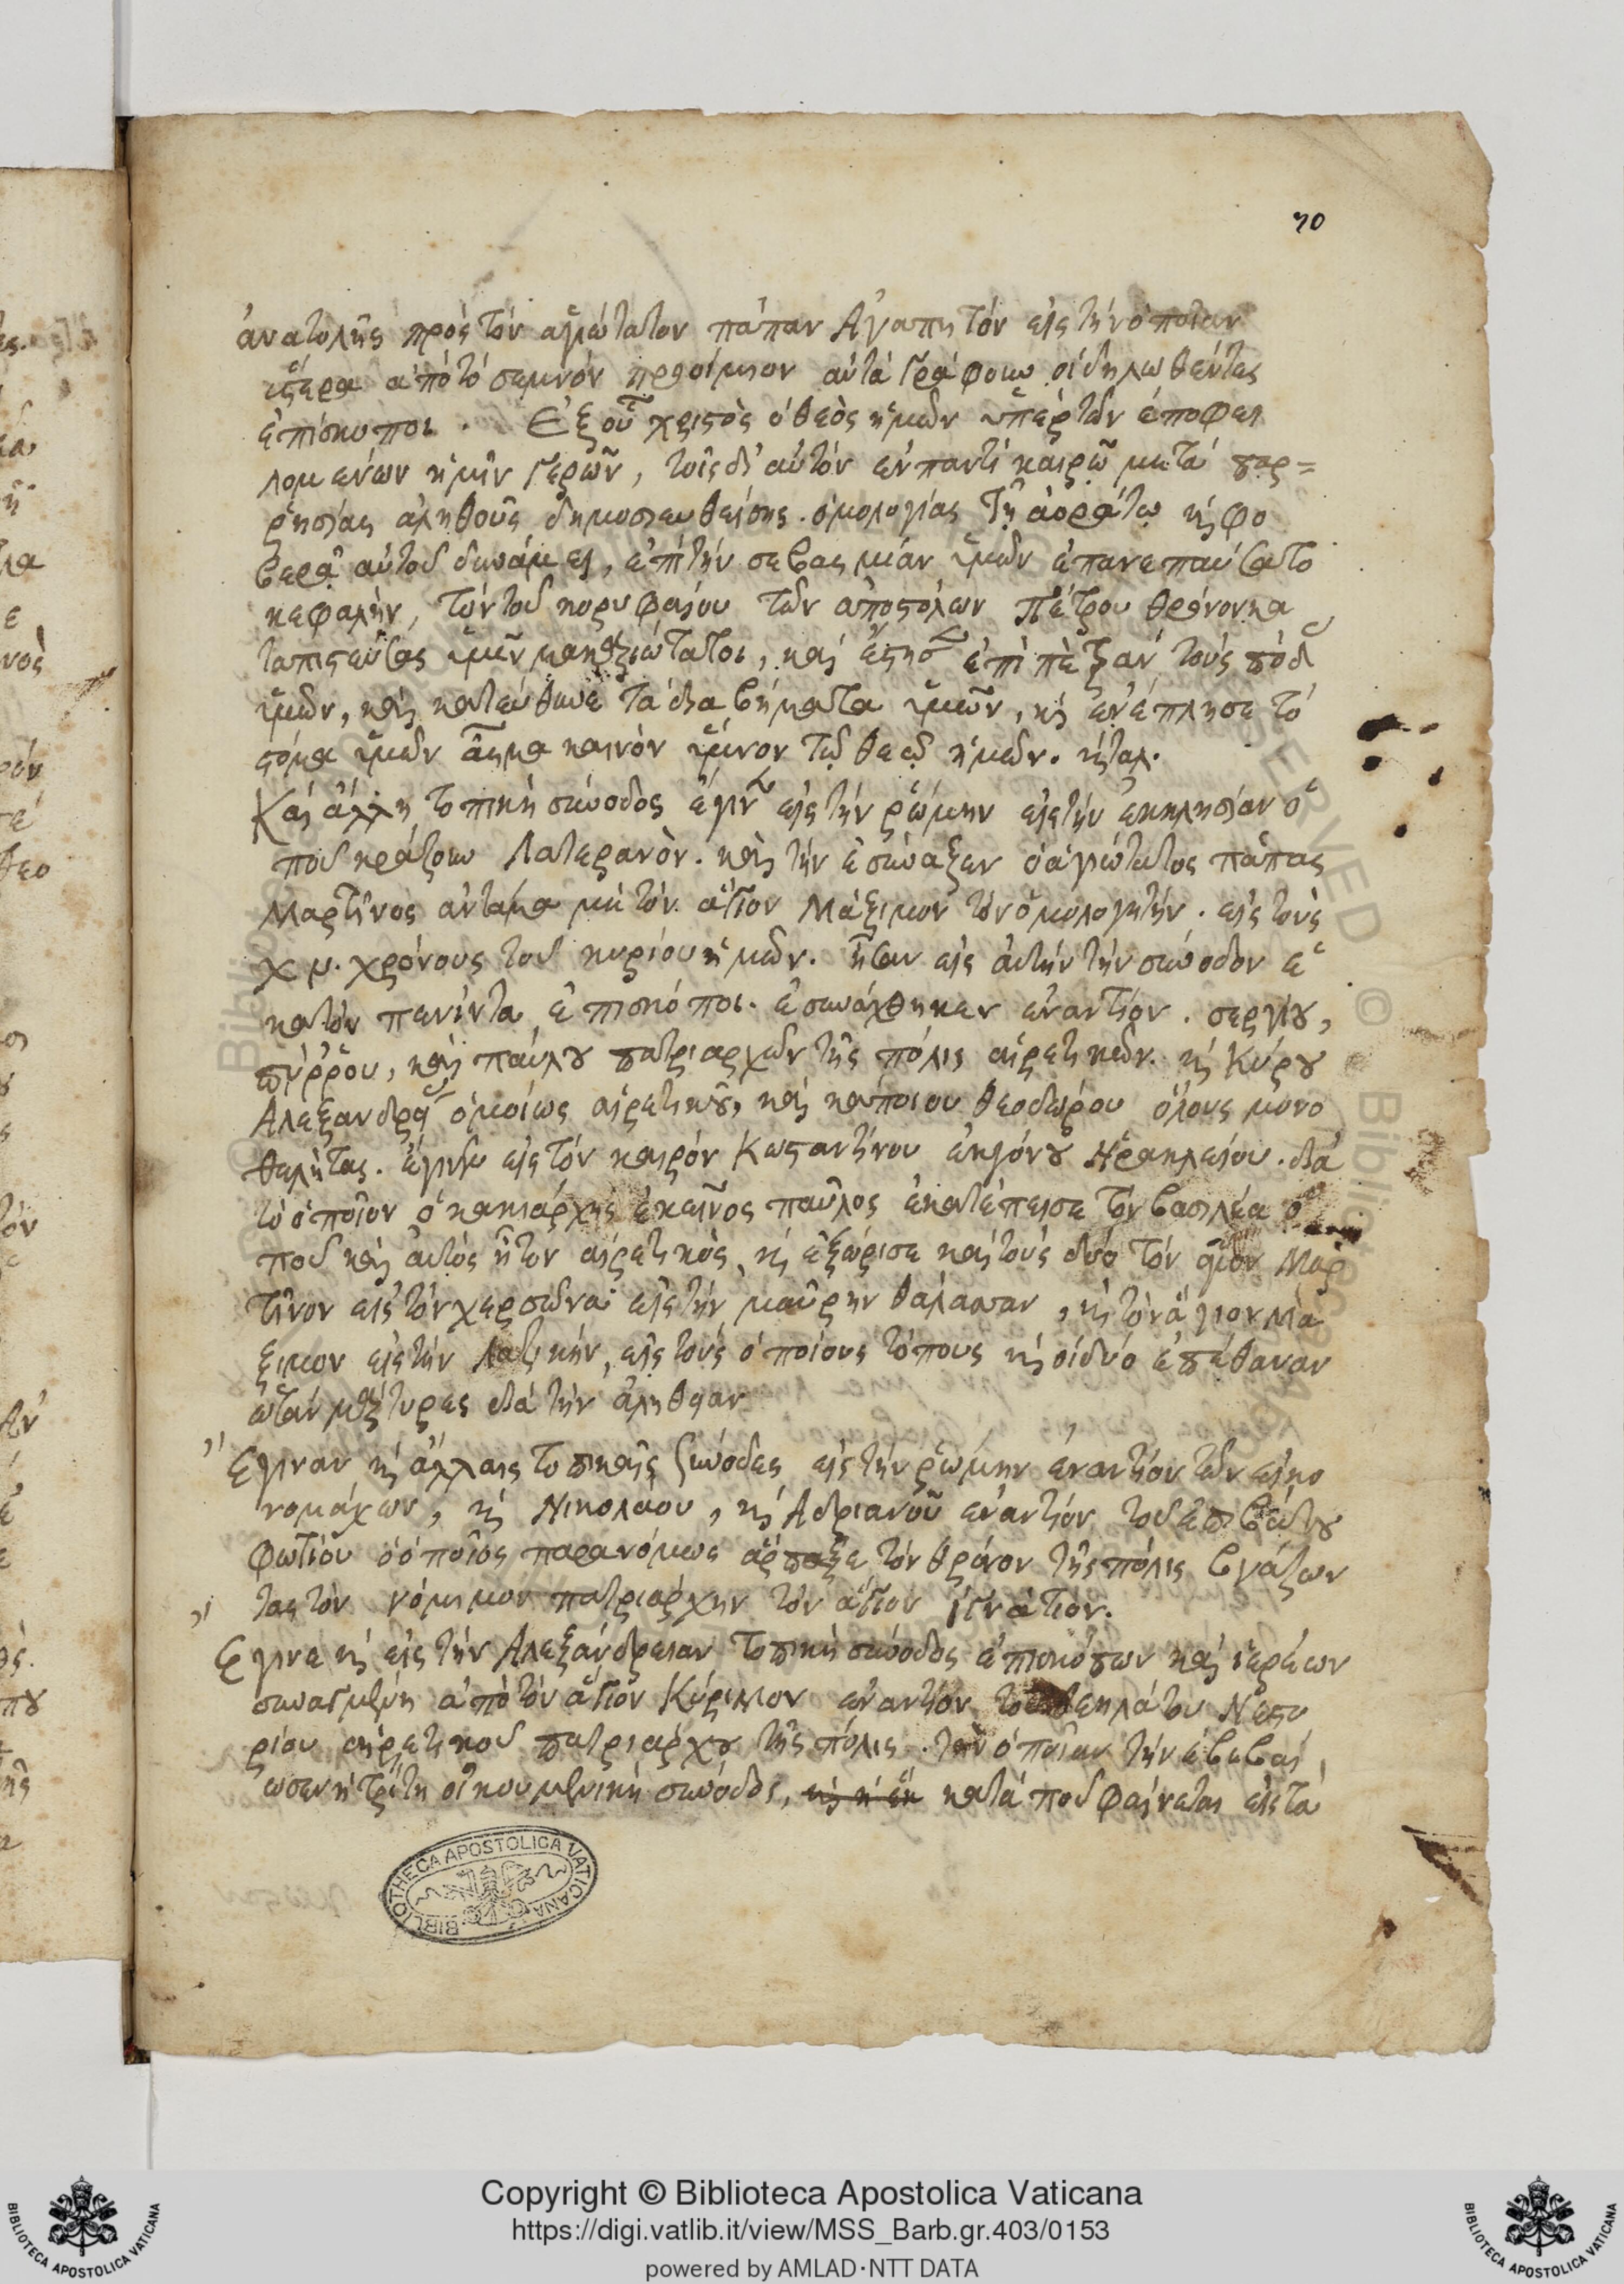 70
ἀνατολῆς πρὸς τὸν ἁγιώτατον πάπαν Ἀγαπητόν εἰς τὴν ὁποίαν
ὕστερα ἀπὸ τὸ σεμνόν προοίμιον αὐτὰ γράφουν οἱ δηλωθέντες
ἐπίσκοποι. Ἐξ οὗ χριστὸς ὁ θεὸς ἡμῶν ὑπὲρ τῶν ἐποφει
λομένων ἡμῖν γερῶν, τοῖς δι' αὐτὸν ἐν παντὶ καιρῷ μετὰ παρ=
ρησίας ἀληθοῦς δημοσιευθείσης ὁμολογίας τῇ ἀοράτῳ κ φο
βερᾷ αὐτοῦ δυνάμει, ἐπὶ τὴν σεβασμίαν ὑμῶν ἐπανεπαύσατο
κεφαλήν, τὸν τοῦ κορυφαίου τῶν ἀποστόλων Πέτρου θρόνον κα
ταπιστεύσας ὑμῖν μακαριώτατοι, καὶ ἔστησ ἐπὶ πέτραν τοὺς πόδ
ὑμῶν, καὶ κατεύθυνε τὰ διαβήματα ὑμῶν, κ ἐνέπλησε τὸ
στόμα ὑμῶν ᾆσμα καινὸν ὕμνον τῷ θεῷ ἡμῶν. κ τἀλ.
Καὶ ἄλλη τοπικὴ σύνοδος ἔγιν εἰς τὴν ῥώμην εἰς τὴν ἐκκλησίαν ὁ
ποῦ κράζουν Λατερανὸν. καὶ τὴν ἐσύναξεν ὁ ἁγιώτατος πάπας
Μαρτῖνος ἀντάμα μὲ τὸν ἅγιον Μάξιμον τὸν ὁμολογητήν. εἰς τοὺς
χμ. χρόνους τοῦ κυρίου ἡμῶν. ἦσαν εἰς αὐτὴν τὴν σύνοδον ἑ
κατὸν πενῆντα ἐπισκόποι. ἐσυνάχθηκεν ἐναντίον. σεργίου,
πύρρου, καὶ παύλου πατριαρχῶν τῆς πόλις αἱρετικῶν. κ Κύρου
Ἀλεξανδρ ὁμοίως αἱρετικοῦ, καὶ κάποιου θεοδώρου ὅλους μονο
θελήτας. ἔγινεν εἰς τὸν καιρὸν Κωσταντίνου ἐκγόνου Ἡρακλείου. διὰ
τὸ ὁποῖον ὁ κακιάρχης ἐκεῖνος παῦλος ἐκατέπεισε τὸν βασιλέα ὁ
ποῦ καὶ αὐτὸς ἦτον αἱρετικὸς, κ ἐξώρισε καὶ τοὺς δυό τὸν ἅγιον Μαρ
τῖνον εἰς τὸν χερσῶνα εἰς τὴν μαύρην θάλασσαν, κ τὸν ἅγιον Μά
ξιμον εἰς τὴν Λαζικήν, εἰς τοὺς ὁποίους τόπους κ οἱ δυό ἐπέθαναν
ὡσὰν μάρτυρες διὰ τὴν ἀλήθειαν
Ἔγιναν κ ἄλλαις τοπικαῖς ζυνόδες εἰς τὴν ῥώμην ἐναντίον τῶν εἰκο
νομάχων, κ Νικολάου, κ Ἀδριανοῦ ἐναντίον τοῦ ἐπιβάτου
Φωτίου ὁ ὁποῖος παρανόμως ἅρπαξε τὸν θρόνον τῆς πόλις βγάζων
τας τὸν νόμιμον πατριάρχην τὸν ἅγιον Ἰγνάτιον.
Ἔγινε κ εἰς τὴν Ἀλεξάνδρειαν τοπικὴ σύνοδος ἐπισκόπων καὶ ἱερέων
συναγμένη ἀπὸ τὸν ἅγιον Κύριλλον ἐναντίον τοῦ θεηλάτου Νεστο
ρίου αἱρετικοῦ πατριάρχου τῆς πόλις. τὴν ὁποίαν τὴν ἐβεβαί
ωσεν ἡ τρίτη οἰκουμενικὴ σύνοδος, κατὰ ποῦ φαίνεται εἰς τὰ
BIBLIOTHECA APOSTOLICA VATICANA
Copyright © Biblioteca Apostolica Vaticana
https://digi.vatlib.it/view/MSS_Barb.gr.403/0153
powered by AMLAD·NTT DATA